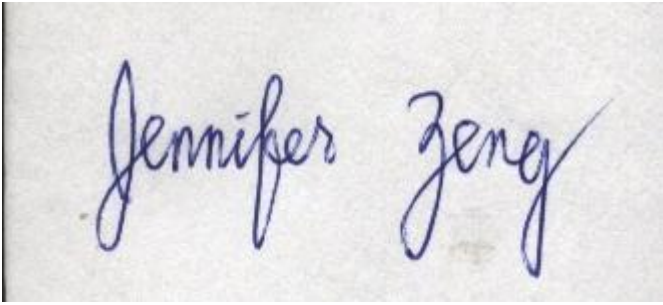 Jennifer Zeng